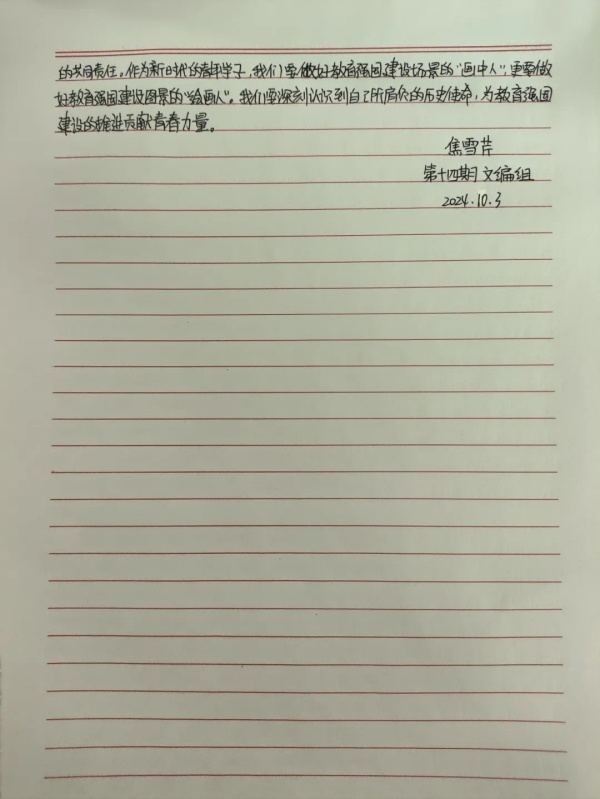 的共同责任。作为新时代的青年学子，我们要做好教育强国建设场景的“画中人”，更要做
好教育强国建设图景的“绘画人”。我们要深刻认识到自己所肩负的历史使命，为教育强国
建设的推进贡献青春力量。
焦雪芹
第十四期文编组
2024.10.3